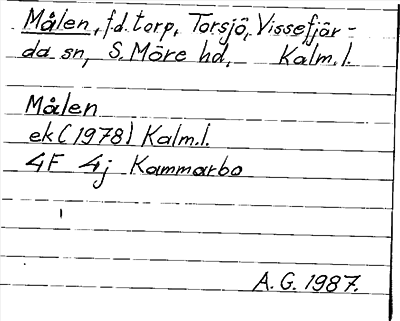 Målen, f.d. torp, Torsjö, Vissefjär-
da sn, S. Möre hd, Kalm.l.
Målen
ek (1978) Kalm.l.
4F 4j Kammarbo
A.G. 1987.